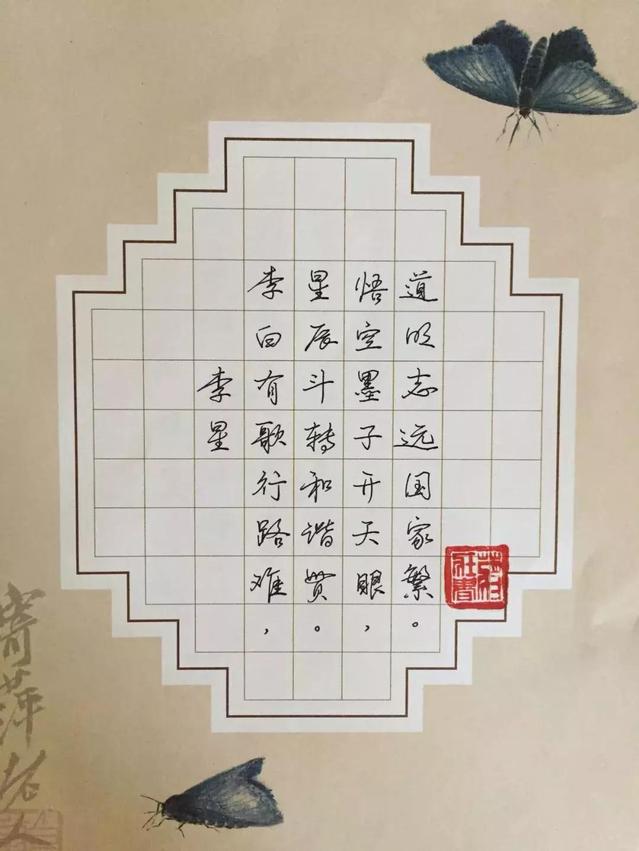 李星
李白有歌行路难，
星辰斗转和谐贯。
悟空墨子开天眼，
道明志远国家繁。
寄萍老人